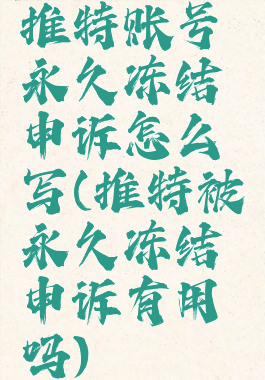 推特账号
永久冻结
申诉怎么
写(推特被
永久冻结
申诉有用
吗)